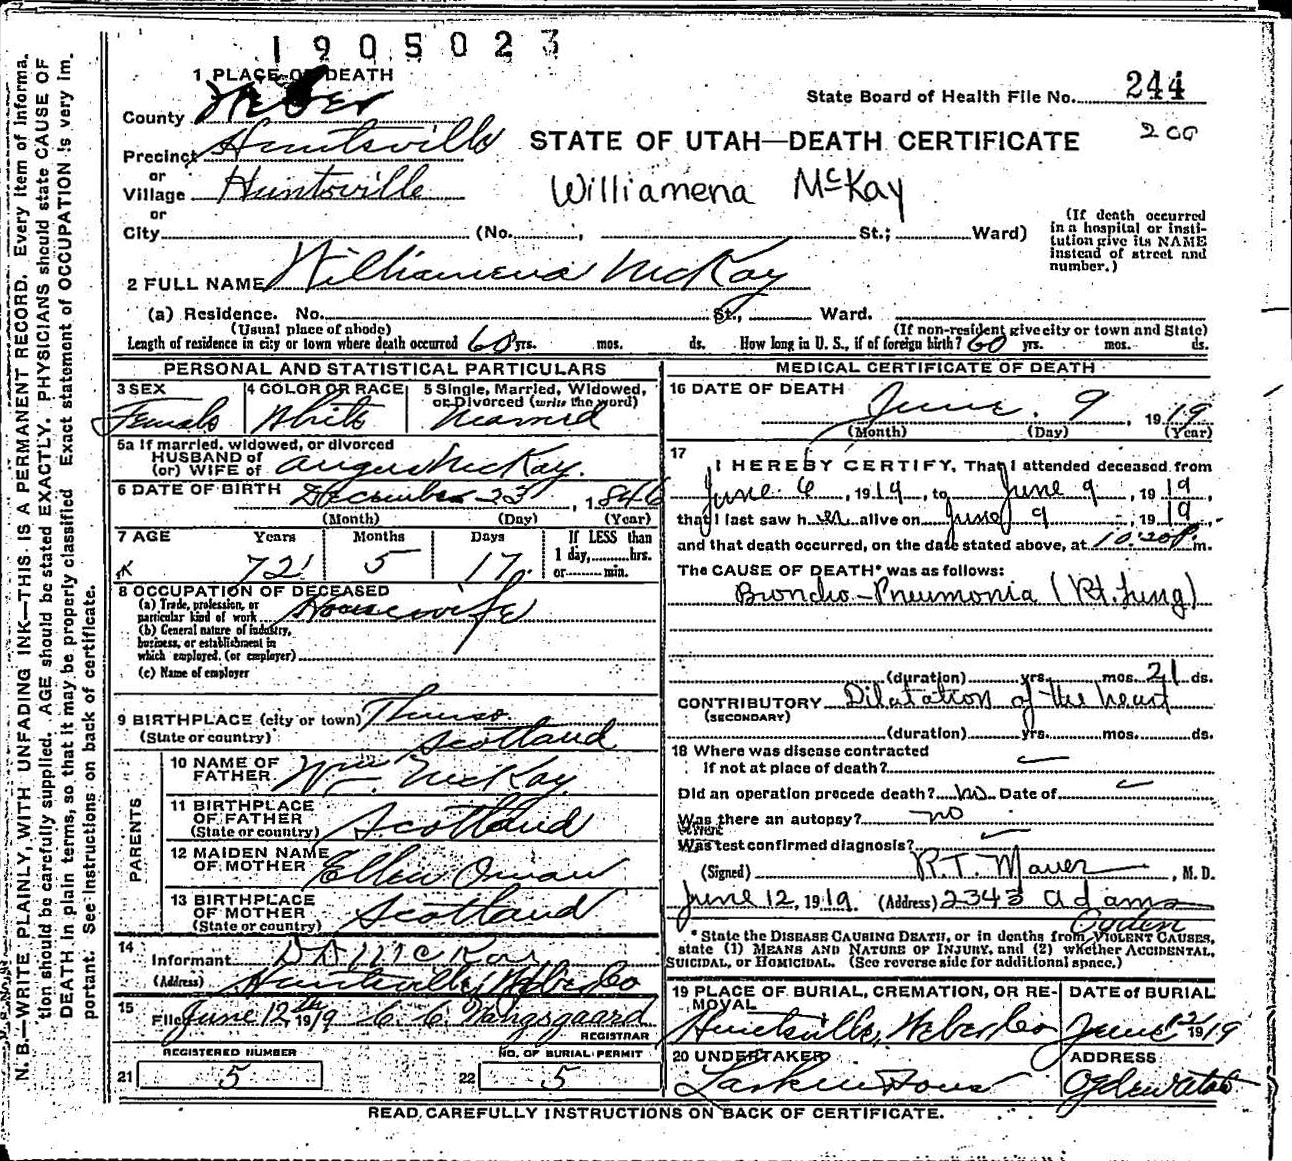 1905023
1 PLACE OF DEATH
State Board of Health File No. 244
County Weber
200
STATE OF UTAH—DEATH CERTIFICATE
Precinct Huntsville
or
Village Huntsville
Williamena McKay
or
City (No. , St.; Ward)
(If death occurred in a hospital or insti-
tution give its NAME
instead of street and
number.)
2 FULL NAME Williamena McKay
(a) Residence. No. St., Ward.
(Usual place of abode) (If non-resident give city or town and State)
Length of residence in city or town where death occurred 60 yrs. mos. ds. How long in U. S., if of foreign birth? 60 yrs. mos. ds.
PERSONAL AND STATISTICAL PARTICULARS
3 SEX Female
4 COLOR OR RACE White
5 Single, Married, Widowed,
or Divorced (write the word)
Married
5a If married, widowed, or divorced
HUSBAND of
(or) WIFE of Angus McKay.
6 DATE OF BIRTH December 23, 1846
(Month) (Day) (Year)
7 AGE Years Months Days If LESS than
72 5 17 1 day, hrs.
or min.
8 OCCUPATION OF DECEASED
(a) Trade, profession, or
particular kind of work Housewife
(b) General nature of industry,
business, or establishment in
which employed. (or employer)
(c) Name of employer
9 BIRTHPLACE (city or town) Thurso.
(State or country) Scotland
PARENTS
10 NAME OF
FATHER Wm McKay
11 BIRTHPLACE
OF FATHER
(State or country) Scotland
12 MAIDEN NAME
OF MOTHER Ellen Oman
13 BIRTHPLACE
OF MOTHER
(State or country) Scotland
14
Informant D A McKay
(Address) Huntsville, Weber Co
15
File June 12th 1919 C. C. Wangsgaard
REGISTRAR
REGISTERED NUMBER NO. OF BURIAL PERMIT
21 5 22 5
MEDICAL CERTIFICATE OF DEATH
16 DATE OF DEATH
June. 9, 1919
(Month) (Day) (Year)
17
I HEREBY CERTIFY, That I attended deceased from
June 6, 1919, to June 9, 1919,
that I last saw her alive on June 9, 1919,
and that death occurred, on the date stated above, at 10:20 P. m.
The CAUSE OF DEATH* was as follows:
Broncho-Pneumonia (Rt. Lung)
(duration) yrs. mos. 21 ds.
CONTRIBUTORY Dilatation of the heart
(SECONDARY)
(duration) yrs. mos. ds.
18 Where was disease contracted
If not at place of death?
Did an operation precede death? no Date of
Was there an autopsy? no
Was test confirmed diagnosis?
(Signed) , M. D.
June 12, 1919. (Address) 2343 Adams
Ogden
* State the DISEASE CAUSING DEATH, or in deaths from VIOLENT CAUSES,
state (1) MEANS AND NATURE OF INJURY, and (2) whether ACCIDENTAL,
SUICIDAL, or HOMICIDAL. (See reverse side for additional space.)
19 PLACE OF BURIAL, CREMATION, OR RE-
MOVAL
Huntsville, Weber Co
DATE of BURIAL
June 12 1919
20 UNDERTAKER
Larkin & Sons
ADDRESS
Ogden Utah
READ CAREFULLY INSTRUCTIONS ON BACK OF CERTIFICATE.
N. B.—WRITE PLAINLY, WITH UNFADING INK—THIS IS A PERMANENT RECORD. Every item of informa-
tion should be carefully supplied. AGE should be stated EXACTLY. PHYSICIANS should state CAUSE OF
DEATH in plain terms, so that it may be properly classified. Exact statement of OCCUPATION is very im-
portant. See instructions on back of certificate.